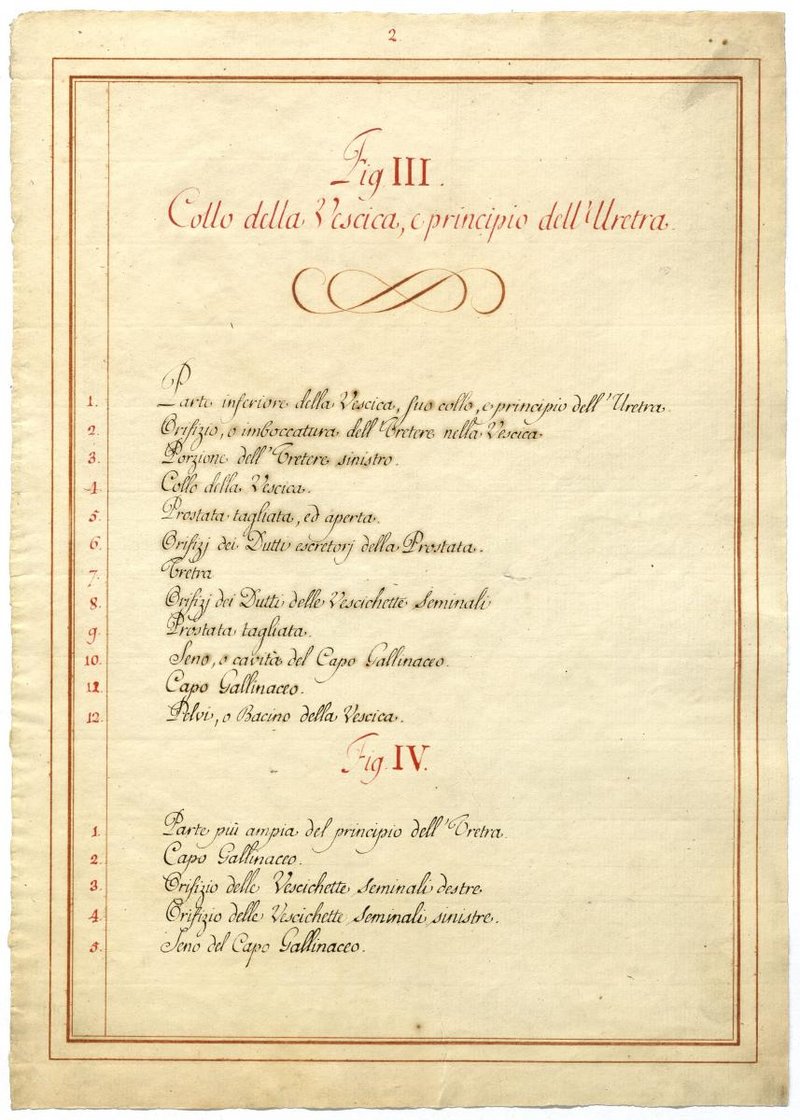 2.
Fig. III.
Collo della Vescica, e principio dell'Uretra.
1. Parte inferiore della Vescica, suo collo, e principio dell'Uretra.
2. Orifizio, o imboccatura dell'Uretere nella Vescica
3. Porzione dell'Uretere sinistro.
4. Collo della Vescica.
5. Prostata tagliata, ed aperta.
6. Orifizj dei Dutti escretorj della Prostata.
7. Uretra
8. Orifizj dei Dutti delle Vescichette seminali
9. Prostata tagliata.
10. Seno, o cavità del Capo Gallinaceo.
11. Capo Gallinaceo.
12. Pelvi, o Bacino della Vescica.
Fig. IV.
1. Parte più ampia del principio dell'Uretra.
2. Capo Gallinaceo.
3. Orifizio delle Vescichette seminali destre
4. Orifizio delle Vescichette seminali sinistre.
5. Seno del Capo Gallinaceo.